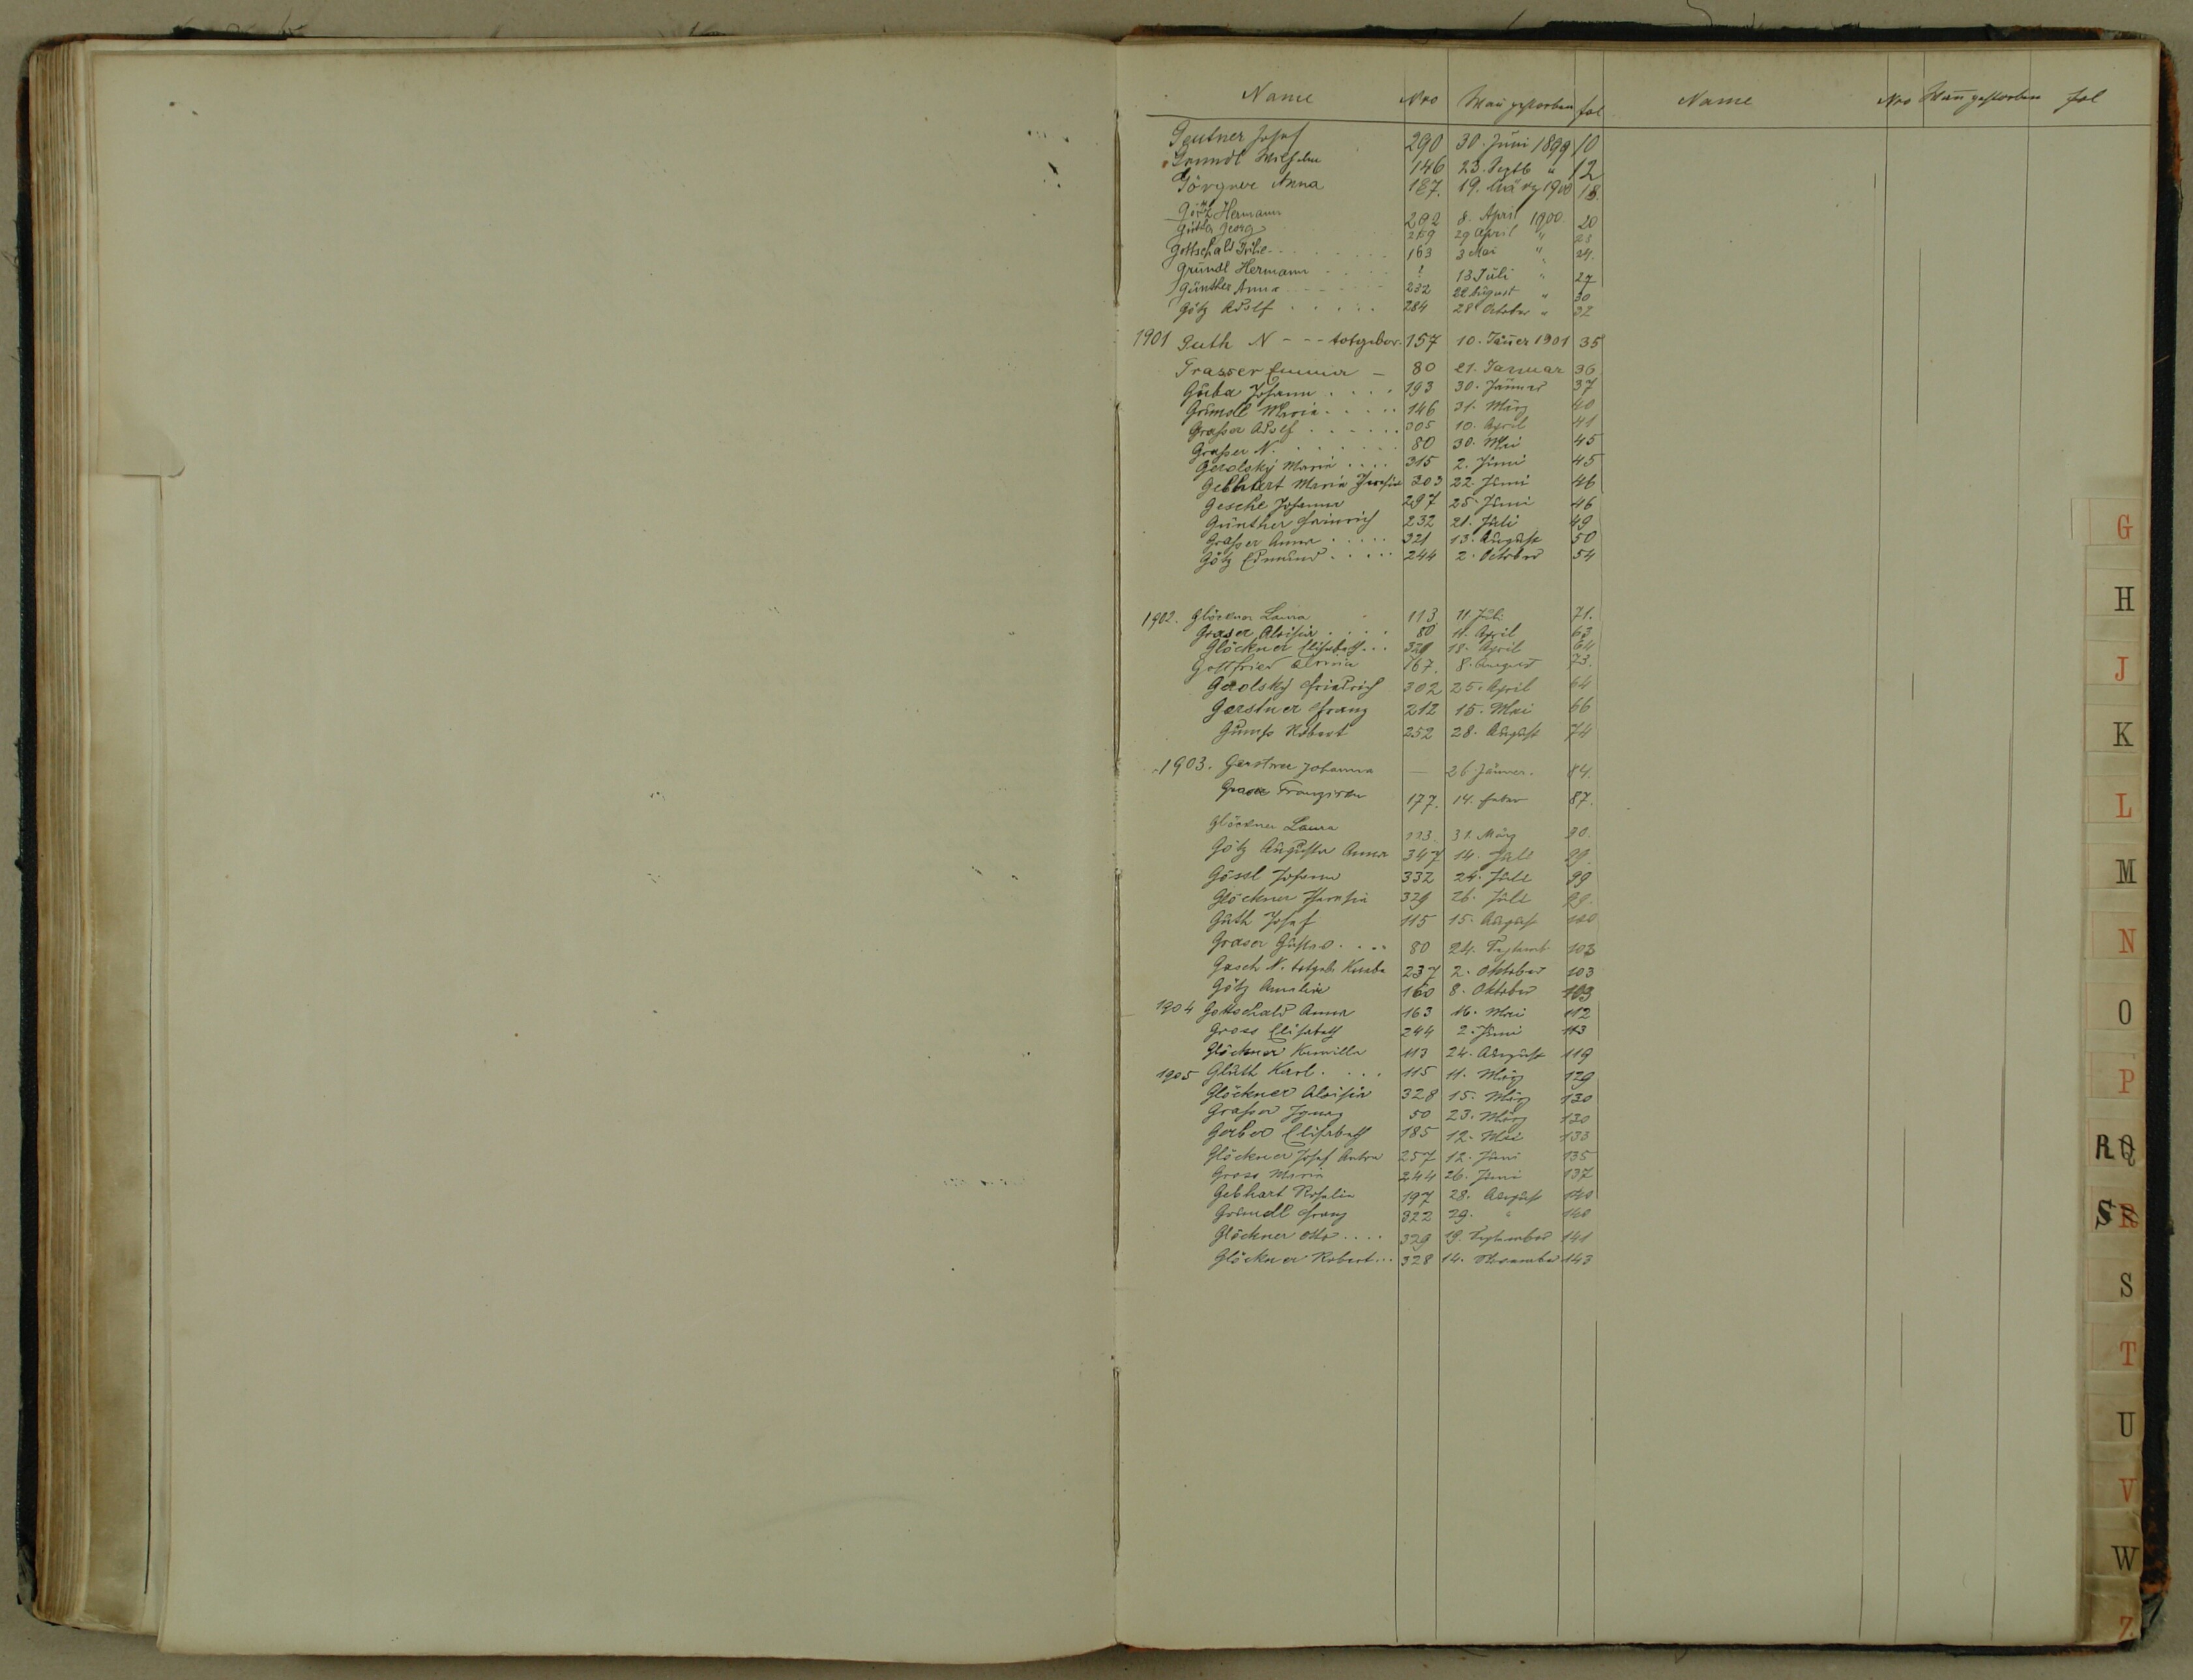 Name Nro Wañ gestorben fol Name Nro Wañ gestorben fol
Geutner Josef 290 30. Juni 1899 10
Grundl Wilhelm 146 23. Septb " 12
Görgner Anna 187. 19. März 1900 18.
Götz Hermann 292 8. April 1900 20
Georg 29 April "
Gottschald 163 3 Mai " 24.
Gründl Hermann ? 13 Juli " 27
Günther Anna 232 22 August " 30
Götz Adolf 284 28 October " 32
1901 Guth N - - - totgebor. 157 10. Jäner 1901 35
Grasser Emma - 80 21. Januar 36
Guba Johann 193 30. Januar 37
Gründl Maria 146 31. März 40
Grasser Adolf 305 10. April 41
Grasser N. 80 30. Mai 45
Gerolsky Maria 315 2. Juni 45
Gebhart Maria 303 22. Juni 46
Gesche Johanna 297 25. Juni 46
Günther Heinrich 232 21. Juli 49
Grasser Anna 321 13. August 50
Götz Edmund 244 2. October 54
1902. Glöckner Laura 113 11 Juli 71.
Graser Aloisia 80 11. April 63
Glöckner Elisabeth 329 18. April 64
Gottfried 167. 8. August 73.
Gerolsky Friedrich 302 25. April 64
Gerstner Franz 212 15. Mai 66
Gumpf Robert 252 28. August 74
1903. Gerstner Johanna — 26 Jänner. 84.
Franziska 177. 14. feber 87.
Glöckner Laura 113 31. März 90.
Götz Augusta Anna 347 14. Juli 99.
Gössl Johann 332 24. Juli 99
Glöckner 329 26. Juli 99.
Guth Josef 115 15. August 100
Graser Gustav 80 24. Septemb. 103
Gasch N. totgeb. Knabe 237 2. Oktober 103
Götz Amalia 160 8. Oktober 103
1904 Gottschald Anna 163 16. Mai 112
Gross Elisabeth 244 2. Juni 113
Glöckner Kamilla 113 24. August 119
1905 Gluth Karl 115 11. März 129
Glöckner Aloisia 328 15. März 130
Grasser Ignaz 50 23. März 130
Gerber Elisabeth 185 12. Mai 133
Glöckner Josef Anton 257 12. Juni 135
Gross Maria 244 26. Juni 137
Gebhart Rosalia 197 28. August 140
Gründl Franz 322 29. " 140
Glöckner Otto 329 19. September 141
Glöckner Robert 328 14. November 143
G
H
J
K
L
M
N
O
P
R Q
S R
S
T
U
V
W
Z